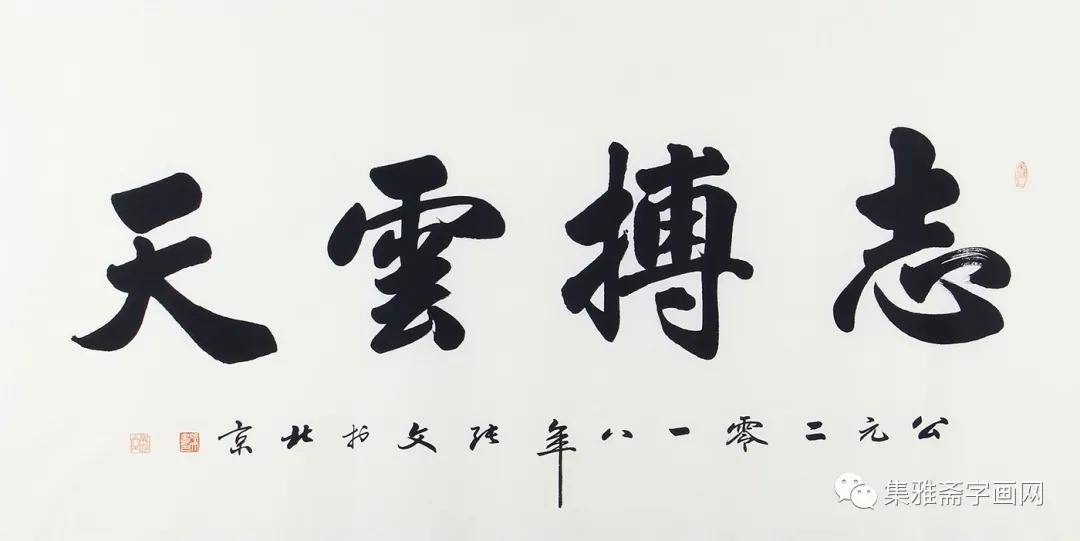 志搏雲天
公元二零一八年张文扵北京
集雅斋字画网